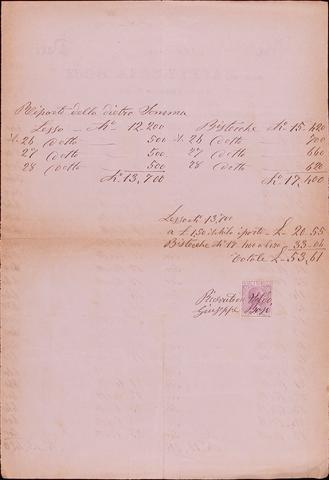 Riporto della dietro Somma
Lesso — Ko 12,200 Bistecche Ko 15,420
26 Detto — 500 26 Detto 700
27 Detto — 500 27 Detto 660
28 Detto — 500 28 Detto 620
Ko 13,700 Ko 17,400
Lesso K 13,700
a £ 1,50 £ 20.55
Bistecche K 17 33.06
Totale £ 53,61
Giuseppe